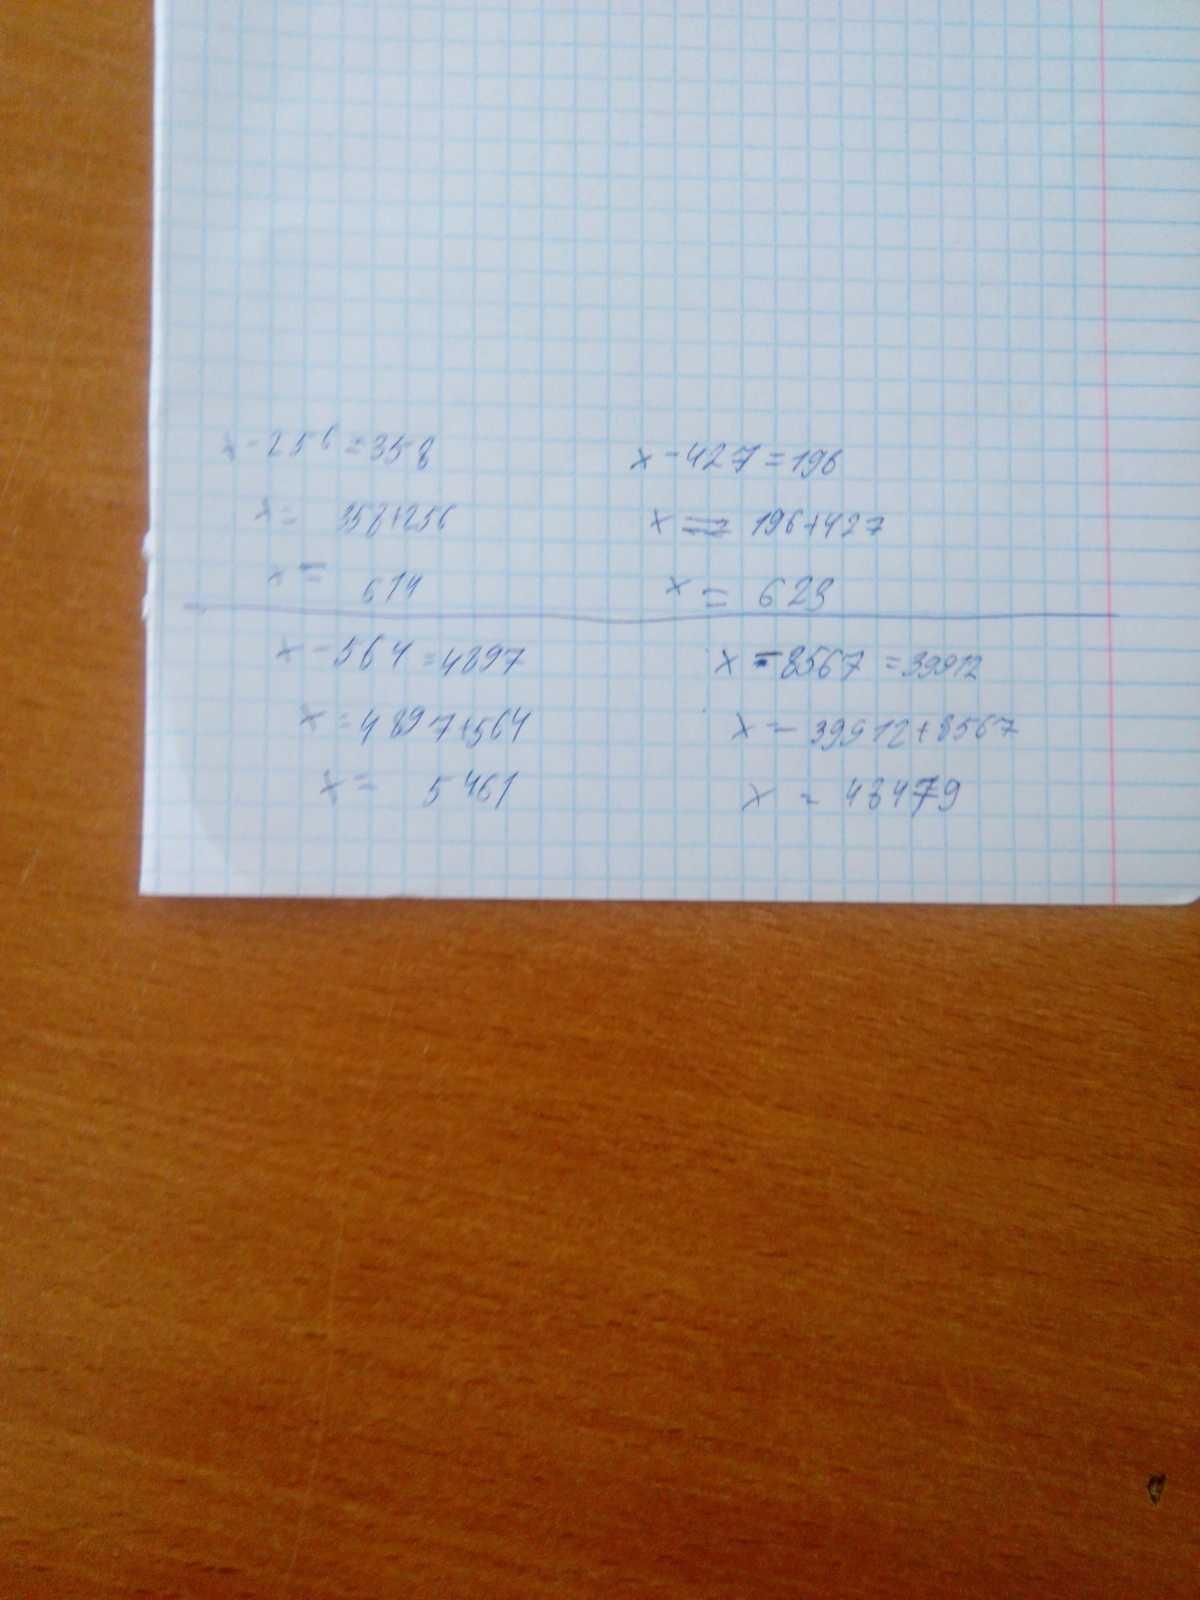 x-256=358
x= 358+256
x= 614
x-427=196
x= 196+427
x= 623
x-564=4897
x=4897+564
x= 5461
x-8567=39912
x=39912+8567
x= 48479